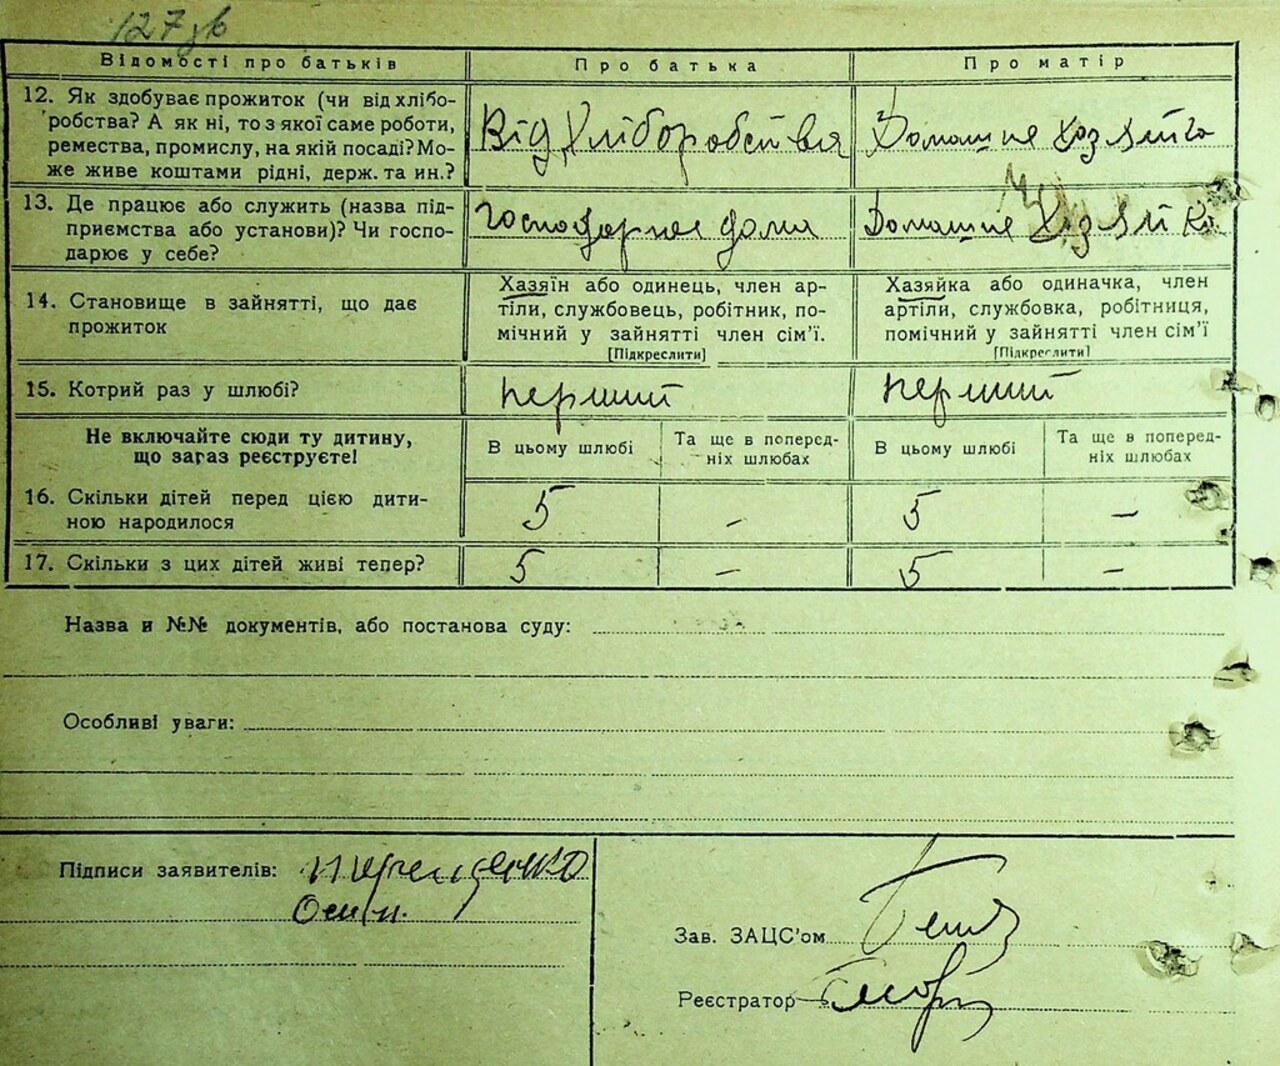 127зв
Відомості про батьків
Про батька
Про матір
12. Як здобуває прожиток (чи від хлібо-
робства? А як ні, то з якої саме роботи,
ремества, промислу, на якій посаді? Мо-
же живе коштами рідні, держ. та ин.?
Від Хліборобства
Домашне Хазяйка
13. Де працює або служить (назва під-
приємства або установи)? Чи госпо-
дарює у себе?
Господорное дома
Домашне Хазяйка
14. Становище в зайнятті, що дає
прожиток
Хазяїн або одинець, член ар-
тіли, службовець, робітник, по-
мічний у зайнятті член сім'ї.
[Підкреслити]
Хазяйка або одиначка, член
артіли, службовка, робітниця,
помічний у зайнятті член сім'ї
[Підкреслити]
15. Котрий раз у шлюбі?
перший
перший
Не включайте сюди ту дитину,
що загаз реєструєте!
В цьому шлюбі
Та ще в поперед-
ніх шлюбах
В цьому шлюбі
Та ще в поперед-
ніх шлюбах
16. Скільки дітей перед цією дити-
ною народилося
5
–
5
–
17. Скільки з цих дітей живі тепер?
5
–
5
–
Назва и №№ документів, або постанова суду:
Особливі уваги:
Підписи заявителів:
Осип.
Зав. ЗАЦС'ом
Реєстратор